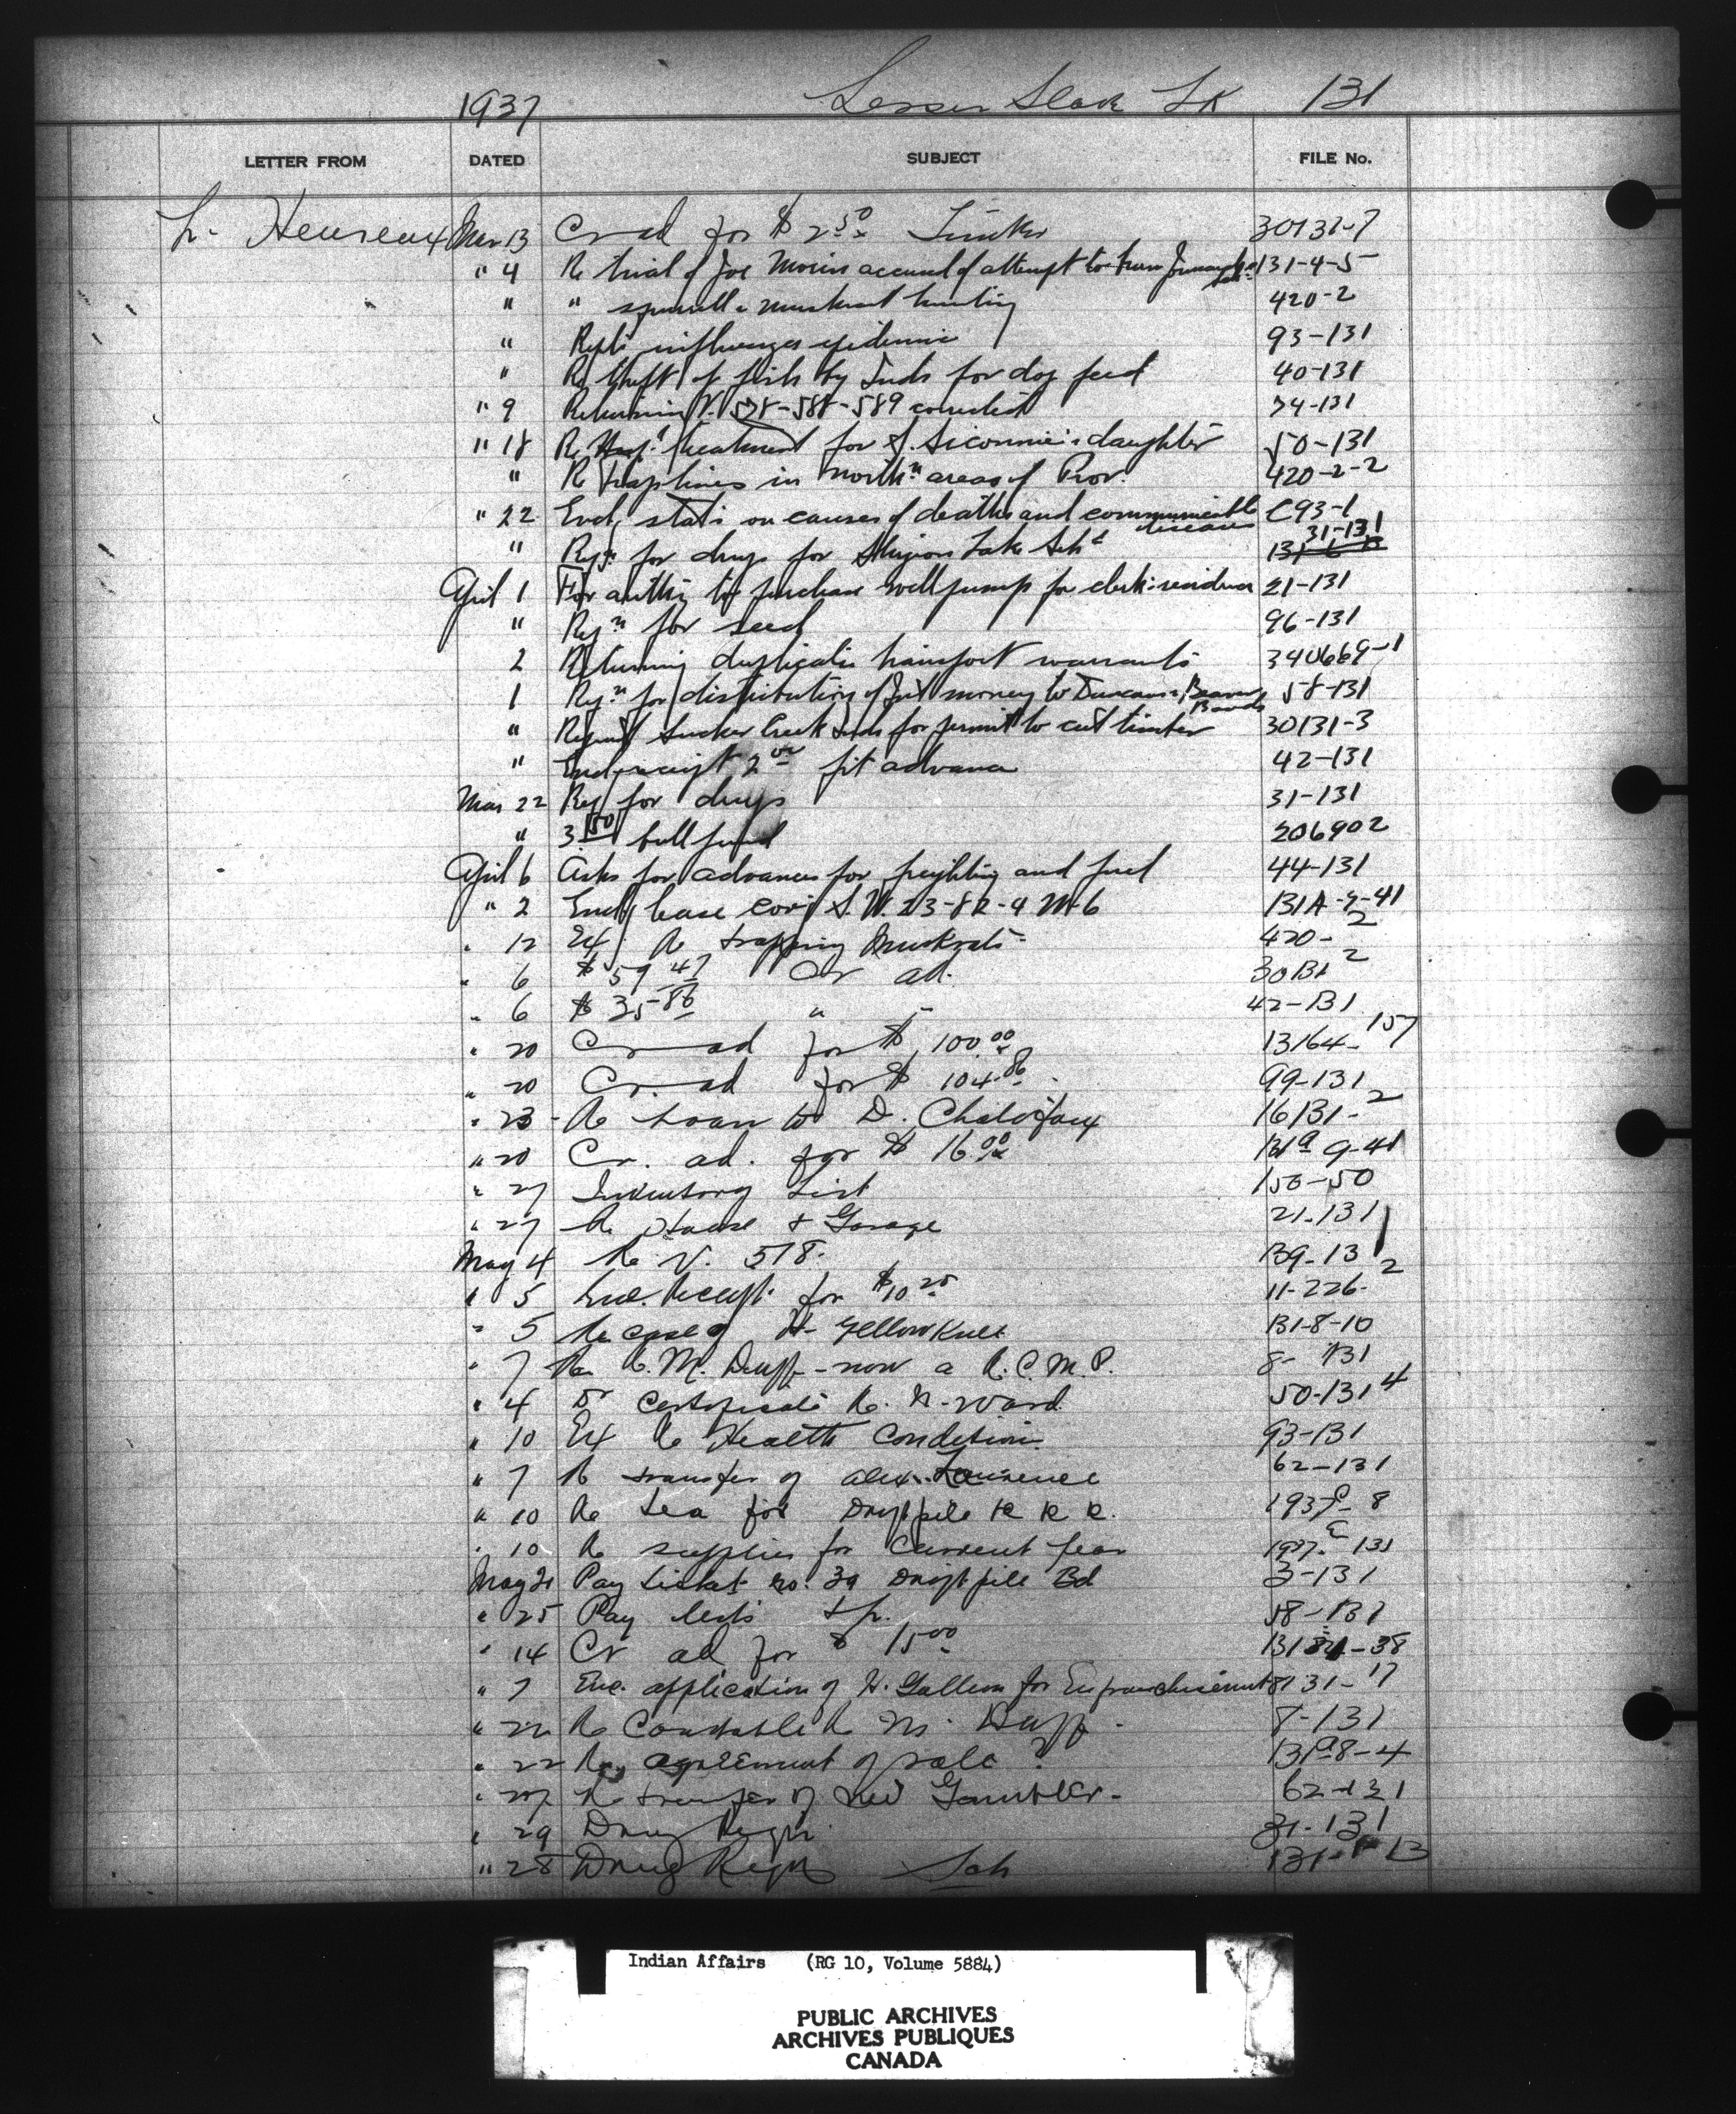 1937 Lesser Slave Lk 131
LETTER FROM DATED SUBJECT FILE No.
L- Heureux Mar 13 Cr ad for $ 2.50 Timber 30131-7
" 4 Re trial of Joe Morin accused of attempt to 131-4-5
" " squirrel & muskrat hunting 420-2
" influenza epidemic 93-131
" Re theft of fish by Inds for dog feed 40-131
" 9 Returning V. 578-588-589 corrected 74-131
" 18 Re Hosp. treatment for daughter 50-131
" Re Traplines in northn areas of Prov. 420-2-2
" 22 Encl. stats on causes of deaths and communicable C93-1
diseases 31-131
" Reqn for drugs for Sturgeon Lake Schl
April 1 For authy to purchase well pump for clerk's residence 21-131
" Reqn for seed 96-131
2 Returning duplicate transport warrants 340669-1
1 Reqn for distribution of Int money to Duncan's & Beaver 58-131
Bands
" Request Sucker Creek Inds for permit to cut timber 30131-3
" Encl receipt 2 00 fit advance 42-131
Mar 22 Req for drugs 31-131
" 3.50 bull fund 206902
April 6 Asks for advances for freighting and fuel 44-131
" 2 Encl lease cov'g S.W. 23-82-4 M-6 131A-9-41
" 12 Ex Re trapping Muskrats 420-2
" 6 $ 59 47 Cr ad. 30131 2
" 6 $ 35-86 " " 42-131
" 20 Cr ad for $ 100.00 13164-157
" 20 Cr. ad for $ 104.86 99-131
" 23 Re Loan to D. Chalifoux 16131-2
" 20 Cr. ad. for $ 16.00 131a 9-41
" 27 Inventory List 150-50
" 27 Re House & Garage 21-131
May 4 Re V. 578. 139-131
" 5 Enc. Receipt for $10 25 11-226-2
" 5 Re case of H- Yellowknee 131-8-10
" 7 Re R. M. Duff - now a R.C.M.P. 8-131
" 4 Dr Certificate Re. Ward 50-131 4
" 10 Ex Re Health Condition 93-131
" 7 Re transfer of Alex. Laurence 62-131
" 10 Re tea for Driftpile R R R. 1937C-8
" 10 Re supplies for Current Year 1937-E 131
May 21 Pay ticket no. 39 Driftpile Bd 3-131
" 25 Pay lists 58-131
" 14 Cr ad for $ 15 00 -38
" 7 Enc. application of H. Gullion for Enfranchisement 8131-17
" 22 Re Constable R M. Duff - 8-131
" 22 Re agreement of sale 131a8-4
" 27 Re transfer of Gambler - 62-131
" 29 Drug Reqn. 31-131
" 28 Drug Reqn Sch
Indian Affairs (RG 10, Volume 5884)
PUBLIC ARCHIVES
ARCHIVES PUBLIQUES
CANADA